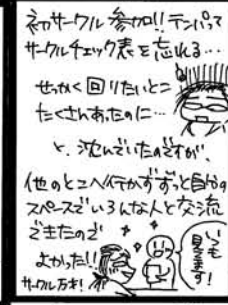 初サークル参加!! テンパって
サークルチェック表を忘れる…
せっかく回りたいとこ
たくさんあったのに…
と、沈んでいたのですが、
他のとこへ行かずずっと自分の
スペースでいろんな人と交流
できたので
よかった!!
サークル万才!
いつも
見てます!